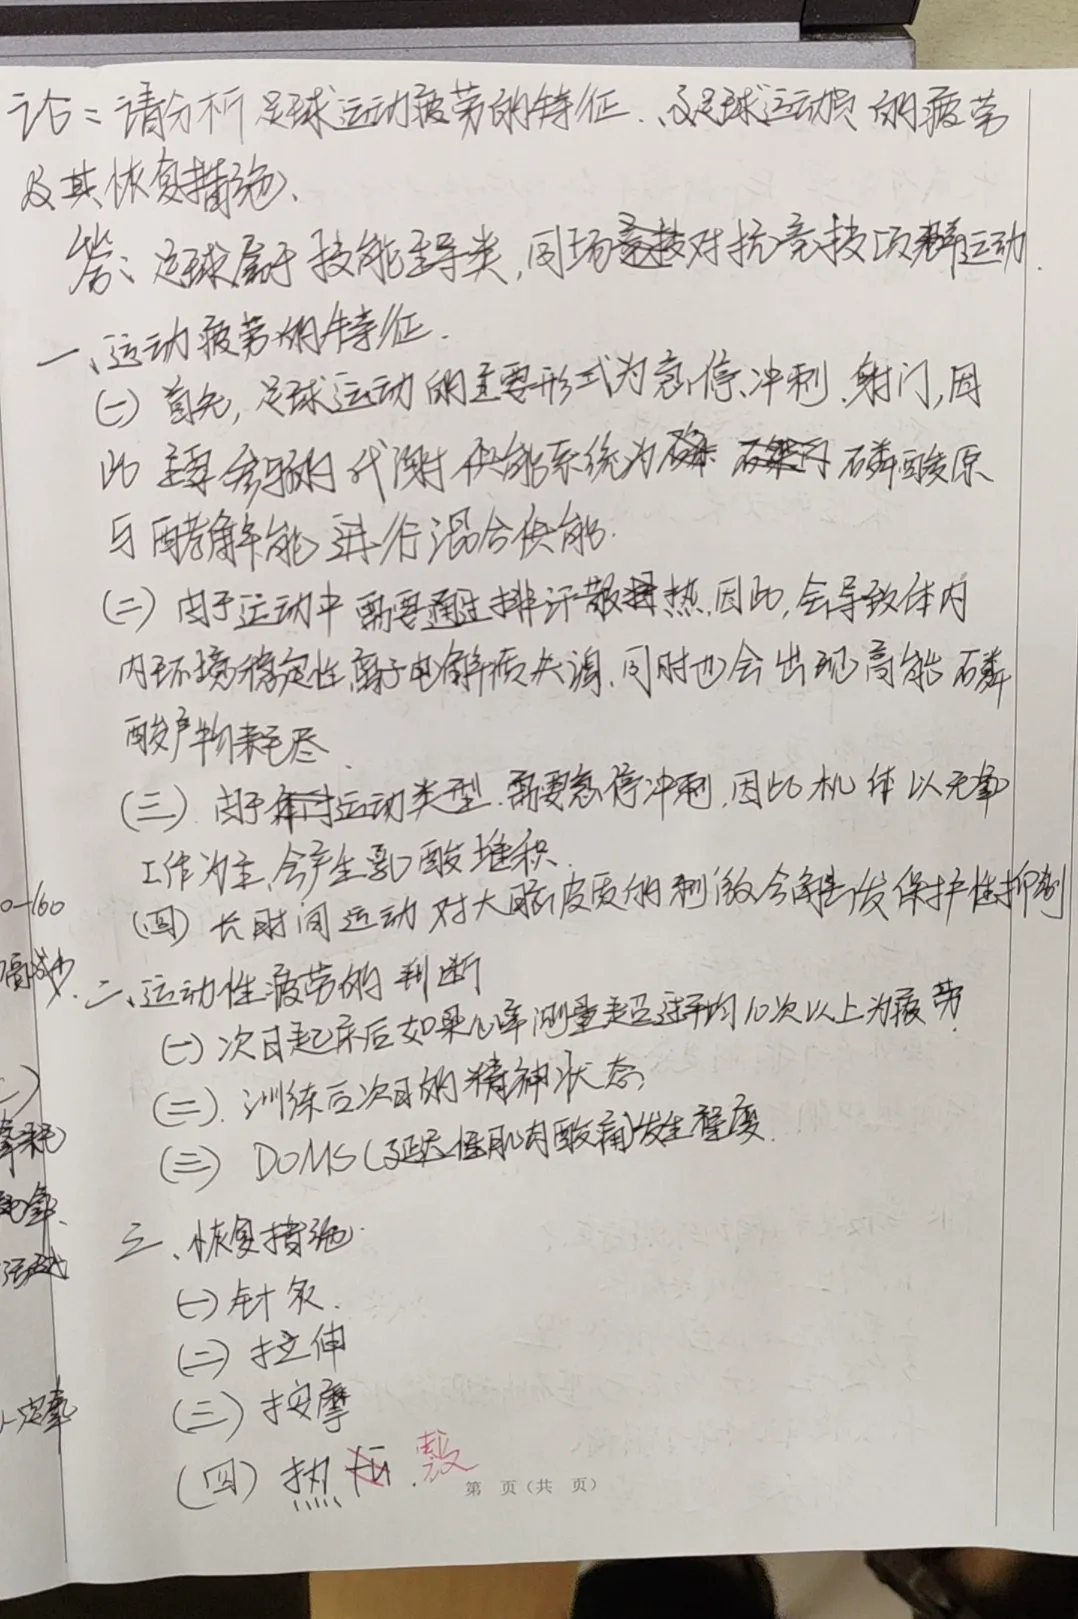 论二请分析足球运动疲劳的特征.及足球运动员的疲劳
及其恢复措施、
答:足球属于技能主导类,同场竞技对抗竞技项群运动.
一、运动疲劳的特征.
(一)首先,足球运动的主要形式为急停、冲刺、射门,因
此主要参与的代谢供能系统为 磷酸原
与酵解能进行混合供能.
(二)由于运动中需要通过排汗散热.因此,会导致体内
内环境稳定性、离子电解质失调.同时也会出现高能磷
酸产物耗尽.
(三).由于运动类型.需要急停冲刺,因此机体以无氧
工作为主,会产生乳酸堆积.
(四)长时间运动对大脑皮质的刺激会触发保护性抑制
二、运动性疲劳的判断
(一)次日起床后如果心率测量超过平均10次以上为疲劳.
(二).训练后次日的精神状态;
(三) DOMS(延迟性肌肉酸痛)发生程度.
三、恢复措施.
(一)针灸.
(二)拉伸
(三)按摩
(四)热 . 敷
第 页(共 页)
0-160